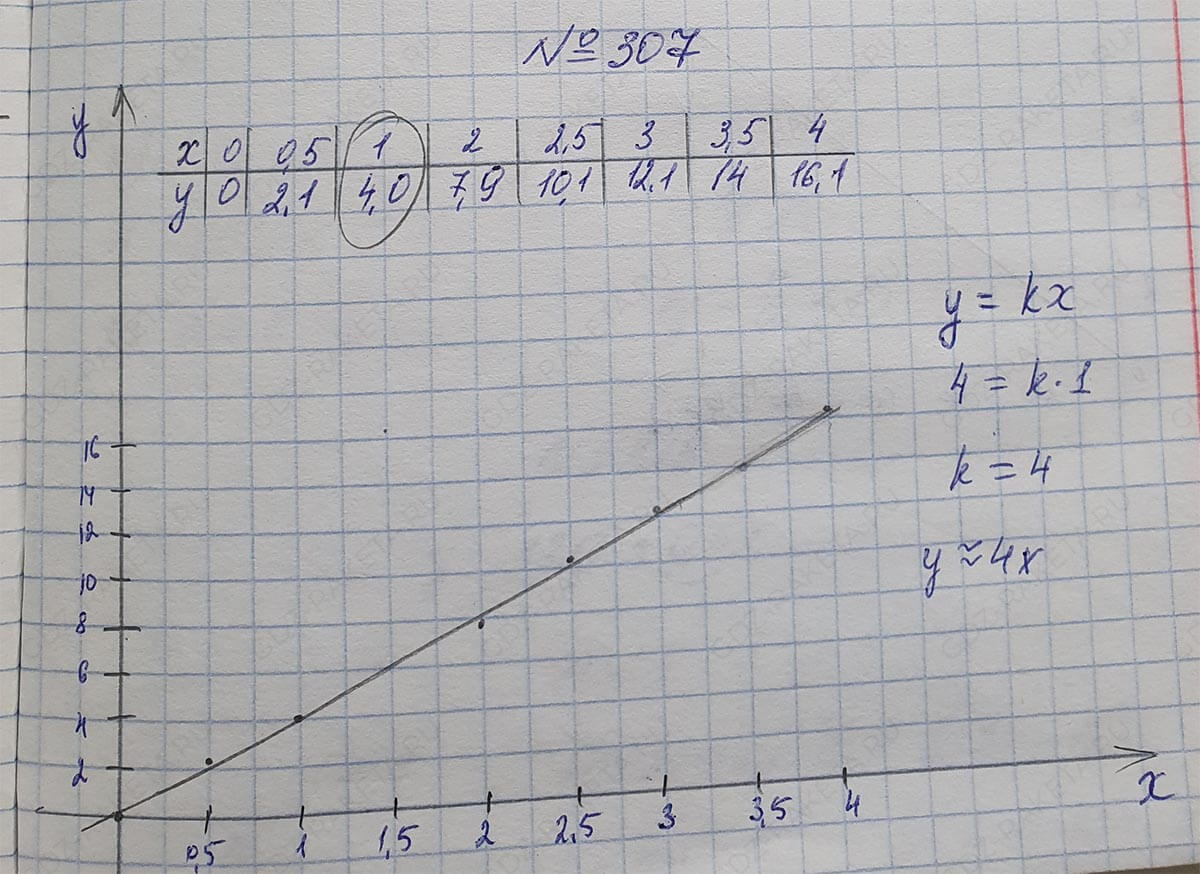 № 307
y
x 0 0,5 1 2 2,5 3 3,5 4
y 0 2,1 4,0 7,9 10,1 12,1 14 16,1
y = kx
4 = k·1
k = 4
y ≈ 4x
16
14
12
10
8
6
4
2
0,5 1 1,5 2 2,5 3 3,5 4
x